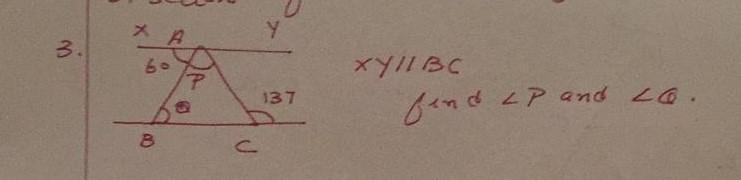 3.
X A Y
60 P
Q 137
B C
XY//BC
find ∠P and ∠Q.